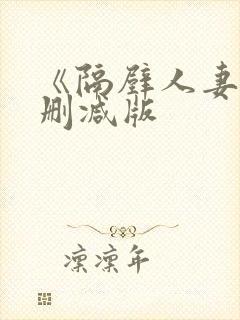 《隔壁人妻
删减版
凛凛年